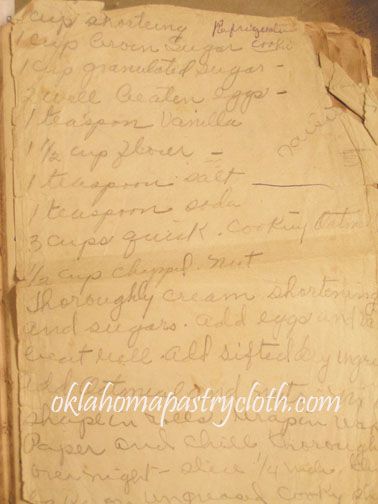 cup shortening Refrigerator
1 cup Brown Sugar Cookie
1 cup granulated Sugar -
2 well beaten eggs -
1 teaspoon Vanilla
1 1/2 cup flour -
1 teaspoon salt
1 teaspoon soda
3 cups quick. Cooking Oatme
1/2 cup chopped. Nut
Thoroughly cream shortening
and sugars. Add eggs and va
beat well. Add sifted dry ingre
add
oklahomapastrycloth.com
shape in rolls. Wrap in wax
Paper and chill thorough
overnight - slice 1/4 wide.
on ungreased cooky sh